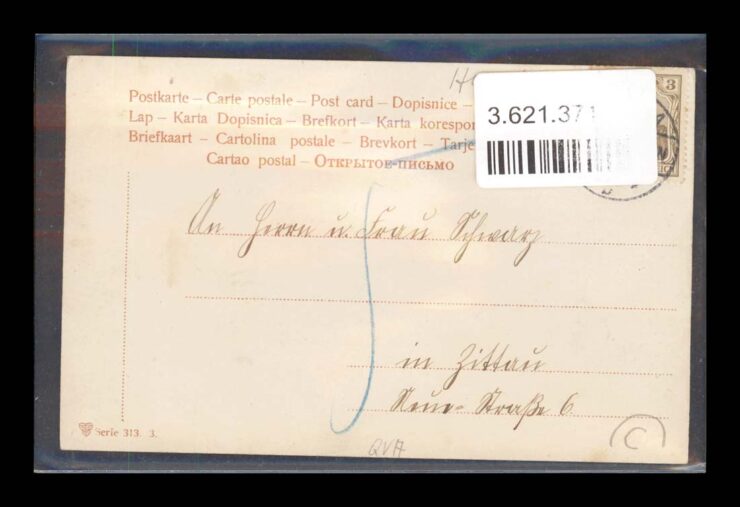 Postkarte – Carte postale – Post card – Dopisnice –
Lap – Karta Dopisnica – Brefkort – Karta korespon
Briefkaart – Cartolina postale – Brevkort – Tarje
Cartao postal – Открытое-письмо
3
3.621.371
An Herrn u. Frau Schwarz
in Zittau
Neue-Straße 6
Serie 313. 3.
QVA
C